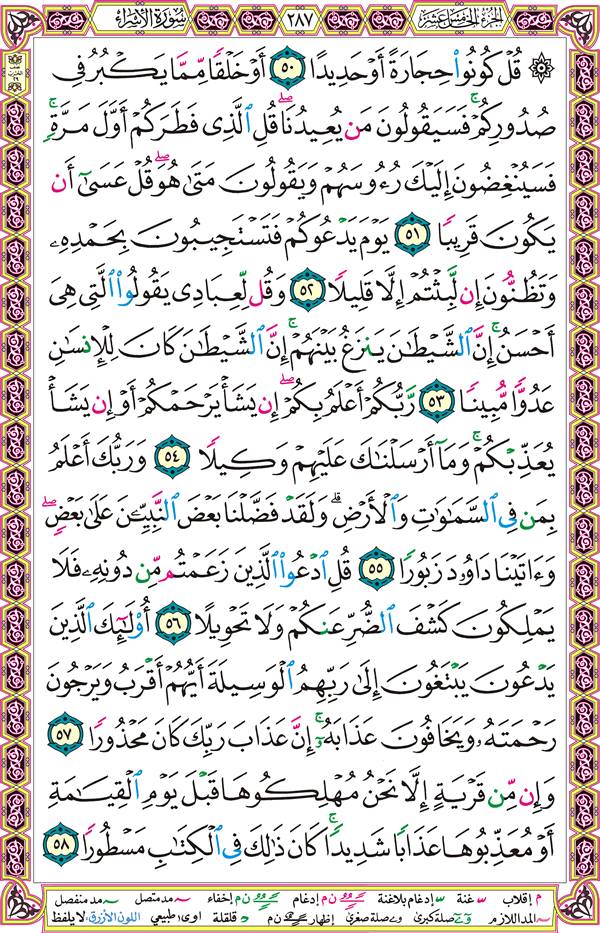 الجزء الخامس عشر ٢٨٧ سورة الإسراء
۞ قُلْ كُونُوا۟ حِجَارَةً أَوْ حَدِيدًا ٥٠ أَوْ خَلْقًا مِّمَّا يَكْبُرُ فِى
صُدُورِكُمْ ۚ فَسَيَقُولُونَ مَن يُعِيدُنَا ۖ قُلِ ٱلَّذِى فَطَرَكُمْ أَوَّلَ مَرَّةٍ ۚ
فَسَيُنْغِضُونَ إِلَيْكَ رُءُوسَهُمْ وَيَقُولُونَ مَتَىٰ هُوَ ۖ قُلْ عَسَىٰٓ أَن
يَكُونَ قَرِيبًا ٥١ يَوْمَ يَدْعُوكُمْ فَتَسْتَجِيبُونَ بِحَمْدِهِۦ
وَتَظُنُّونَ إِن لَّبِثْتُمْ إِلَّا قَلِيلًا ٥٢ وَقُل لِّعِبَادِى يَقُولُوا۟ ٱلَّتِى هِىَ
أَحْسَنُ ۚ إِنَّ ٱلشَّيْطَـٰنَ يَنزَغُ بَيْنَهُمْ ۚ إِنَّ ٱلشَّيْطَـٰنَ كَانَ لِلْإِنسَـٰنِ
عَدُوًّا مُّبِينًا ٥٣ رَّبُّكُمْ أَعْلَمُ بِكُمْ ۖ إِن يَشَأْ يَرْحَمْكُمْ أَوْ إِن يَشَأْ
يُعَذِّبْكُمْ ۚ وَمَآ أَرْسَلْنَـٰكَ عَلَيْهِمْ وَكِيلًا ٥٤ وَرَبُّكَ أَعْلَمُ
بِمَن فِى ٱلسَّمَـٰوَٰتِ وَٱلْأَرْضِ ۗ وَلَقَدْ فَضَّلْنَا بَعْضَ ٱلنَّبِيِّـۧنَ عَلَىٰ بَعْضٍ ۖ
وَءَاتَيْنَا دَاوُۥدَ زَبُورًا ٥٥ قُلِ ٱدْعُوا۟ ٱلَّذِينَ زَعَمْتُم مِّن دُونِهِۦ فَلَا
يَمْلِكُونَ كَشْفَ ٱلضُّرِّ عَنكُمْ وَلَا تَحْوِيلًا ٥٦ أُو۟لَـٰٓئِكَ ٱلَّذِينَ
يَدْعُونَ يَبْتَغُونَ إِلَىٰ رَبِّهِمُ ٱلْوَسِيلَةَ أَيُّهُمْ أَقْرَبُ وَيَرْجُونَ
رَحْمَتَهُۥ وَيَخَافُونَ عَذَابَهُۥٓ ۚ إِنَّ عَذَابَ رَبِّكَ كَانَ مَحْذُورًا ٥٧
وَإِن مِّن قَرْيَةٍ إِلَّا نَحْنُ مُهْلِكُوهَا قَبْلَ يَوْمِ ٱلْقِيَـٰمَةِ
أَوْ مُعَذِّبُوهَا عَذَابًا شَدِيدًا ۚ كَانَ ذَٰلِكَ فِى ٱلْكِتَـٰبِ مَسْطُورًا ٥٨
م إقلاب غنة إدغام بلاغنة ن م إدغام إخفاء مد متصل مد منفصل
المد اللازم صلة كبرى صلة صغرى إظهار ن م قلقلة اوى طبيعي اللون الأزرق: لا يلفظ